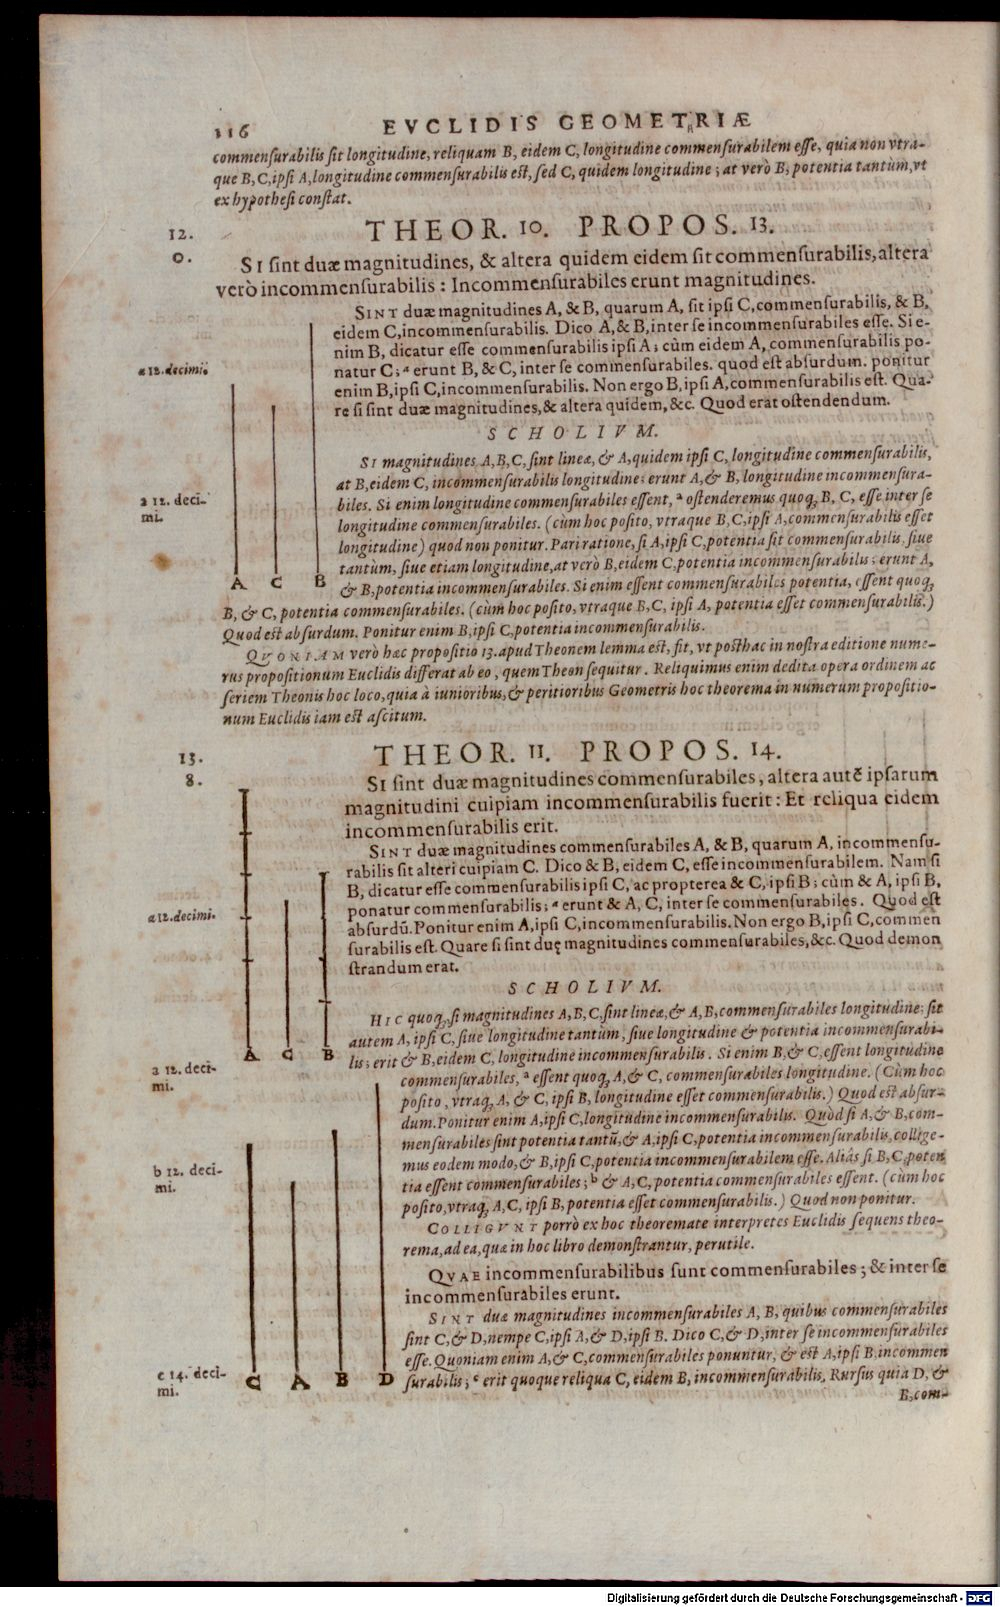 116 EVCLIDIS GEOMETRIÆ
commensurabilis sit longitudine, reliquam B, eidem C, longitudine commensurabilem esse, quia non vtra-
que B, C, ipsi A, longitudine commensurabilis est, sed C, quidem longitudine; at verò B, potentia tantùm, vt
ex hypothesi constat.
12. THEOR. 10. PROPOS. 13.
0.
SI sint duæ magnitudines, & altera quidem eidem sit commensurabilis, altera
verò incommensurabilis: Incommensurabiles erunt magnitudines.
SINT duæ magnitudines A, & B, quarum A, sit ipsi C, commensurabilis, & B,
eidem C, incommensurabilis. Dico A, & B, inter se incommensurabiles esse. Si e-
nim B, dicatur esse commensurabilis ipsi A; cùm eidem A, commensurabilis po-
a 12. decimi.
natur C; a erunt B, & C, inter se commensurabiles. quod est absurdum. ponitur
enim B, ipsi C, incommensurabilis. Non ergo B, ipsi A, commensurabilis est. Qua-
re si sint duæ magnitudines, & altera quidem, &c. Quod erat ostendendum.
SCHOLIVM.
SI magnitudines A, B, C, sint lineæ, & A, quidem ipsi C, longitudine commensurabilis,
at B, eidem C, incommensurabilis longitudine; erunt A, & B, longitudine incommensura-
a 12. deci-
mi.
biles. Si enim longitudine commensurabiles essent, a ostenderemus quoq; B, C, esse inter se
longitudine commensurabiles. (cùm hoc posito, vtraque B, C, ipsi A, commensurabilis esset
longitudine) quod non ponitur. Pari ratione, si A, ipsi C, potentia sit commensurabilis, siue
tantùm, siue etiam longitudine, at verò B, eidem C, potentia incommensurabilis; erunt A,
A C B
& B, potentia incommensurabiles. Si enim essent commensurabiles potentia, essent quoq;
B, & C, potentia commensurabiles. (cùm hoc posito, vtraque B, C, ipsi A, potentia esset commensurabilis.)
Quod est absurdum. Ponitur enim B, ipsi C, potentia incommensurabilis.
QVONIAM verò hæc propositio 13. apud Theonem lemma est, fit, vt posthac in nostra editione nume-
rus propositionum Euclidis differat ab eo, quem Theon sequitur. Reliquimus enim dedita opera ordinem ac
seriem Theonis hoc loco, quia à iunioribus, & peritioribus Geometris hoc theorema in numerum propositio-
num Euclidis iam est ascitum.
13. THEOR. 11. PROPOS. 14.
8.
SI sint duæ magnitudines commensurabiles, altera autē ipsarum
magnitudini cuipiam incommensurabilis fuerit: Et reliqua eidem
incommensurabilis erit.
SINT duæ magnitudines commensurabiles A, & B, quarum A, incommensu-
rabilis sit alteri cuipiam C. Dico & B, eidem C, esse incommensurabilem. Nam si
B, dicatur esse commensurabilis ipsi C, ac propterea & C, ipsi B; cùm & A, ipsi B,
a 12. decimi.
ponatur commensurabilis; a erunt & A, C, inter se commensurabiles. Quod est
absurdū. Ponitur enim A, ipsi C, incommensurabilis. Non ergo B, ipsi C, commen
surabilis est. Quare si sint duę magnitudines commensurabiles, &c. Quod demon
strandum erat.
SCHOLIVM.
HIC quoq; si magnitudines A, B, C, sint lineæ, & A, B, commensurabiles longitudine; sit
autem A, ipsi C, siue longitudine tantùm, siue longitudine & potentia incommensurabi-
A C B
lis; erit & B, eidem C, longitudine incommensurabilis. Si enim B, & C, essent longitudine
a 12. deci-
mi.
commensurabiles, a essent quoq; A, & C, commensurabiles longitudine. (Cùm hoc
posito, vtraq; A, & C, ipsi B, longitudine esset commensurabilis.) Quod est absur-
dum. Ponitur enim A, ipsi C, longitudine incommensurabilis. Quòd si A, & B, com-
mensurabiles sint potentia tantū, & A, ipsi C, potentia incommensurabilis, collige-
mus eodem modo, & B, ipsi C, potentia incommensurabilem esse. Aliàs si B, C, poten
b 12. deci-
mi.
tia essent commensurabiles; b & A, C, potentia commensurabiles essent. (cùm hoc
posito, vtraq; A, C, ipsi B, potentia esset commensurabilis.) Quod non ponitur.
COLLIGVNT porrò ex hoc theoremate interpretes Euclidis sequens theo-
rema, ad ea, quæ in hoc libro demonstrantur, perutile.
QVAE incommensurabilibus sunt commensurabiles; & inter se
incommensurabiles erunt.
SINT duæ magnitudines incommensurabiles A, B, quibus commensurabiles
sint C, & D, nempe C, ipsi A, & D, ipsi B. Dico C, & D, inter se incommensurabiles
esse. Quoniam enim A, & C, commensurabiles ponuntur, & est A, ipsi B, incommen
c 14. deci-
mi.
C A B D
surabilis; c erit quoque reliqua C, eidem B, incommensurabilis. Rursus quia D, &
B, com-
Digitalisierung gefördert durch die Deutsche Forschungsgemeinschaft - DFG